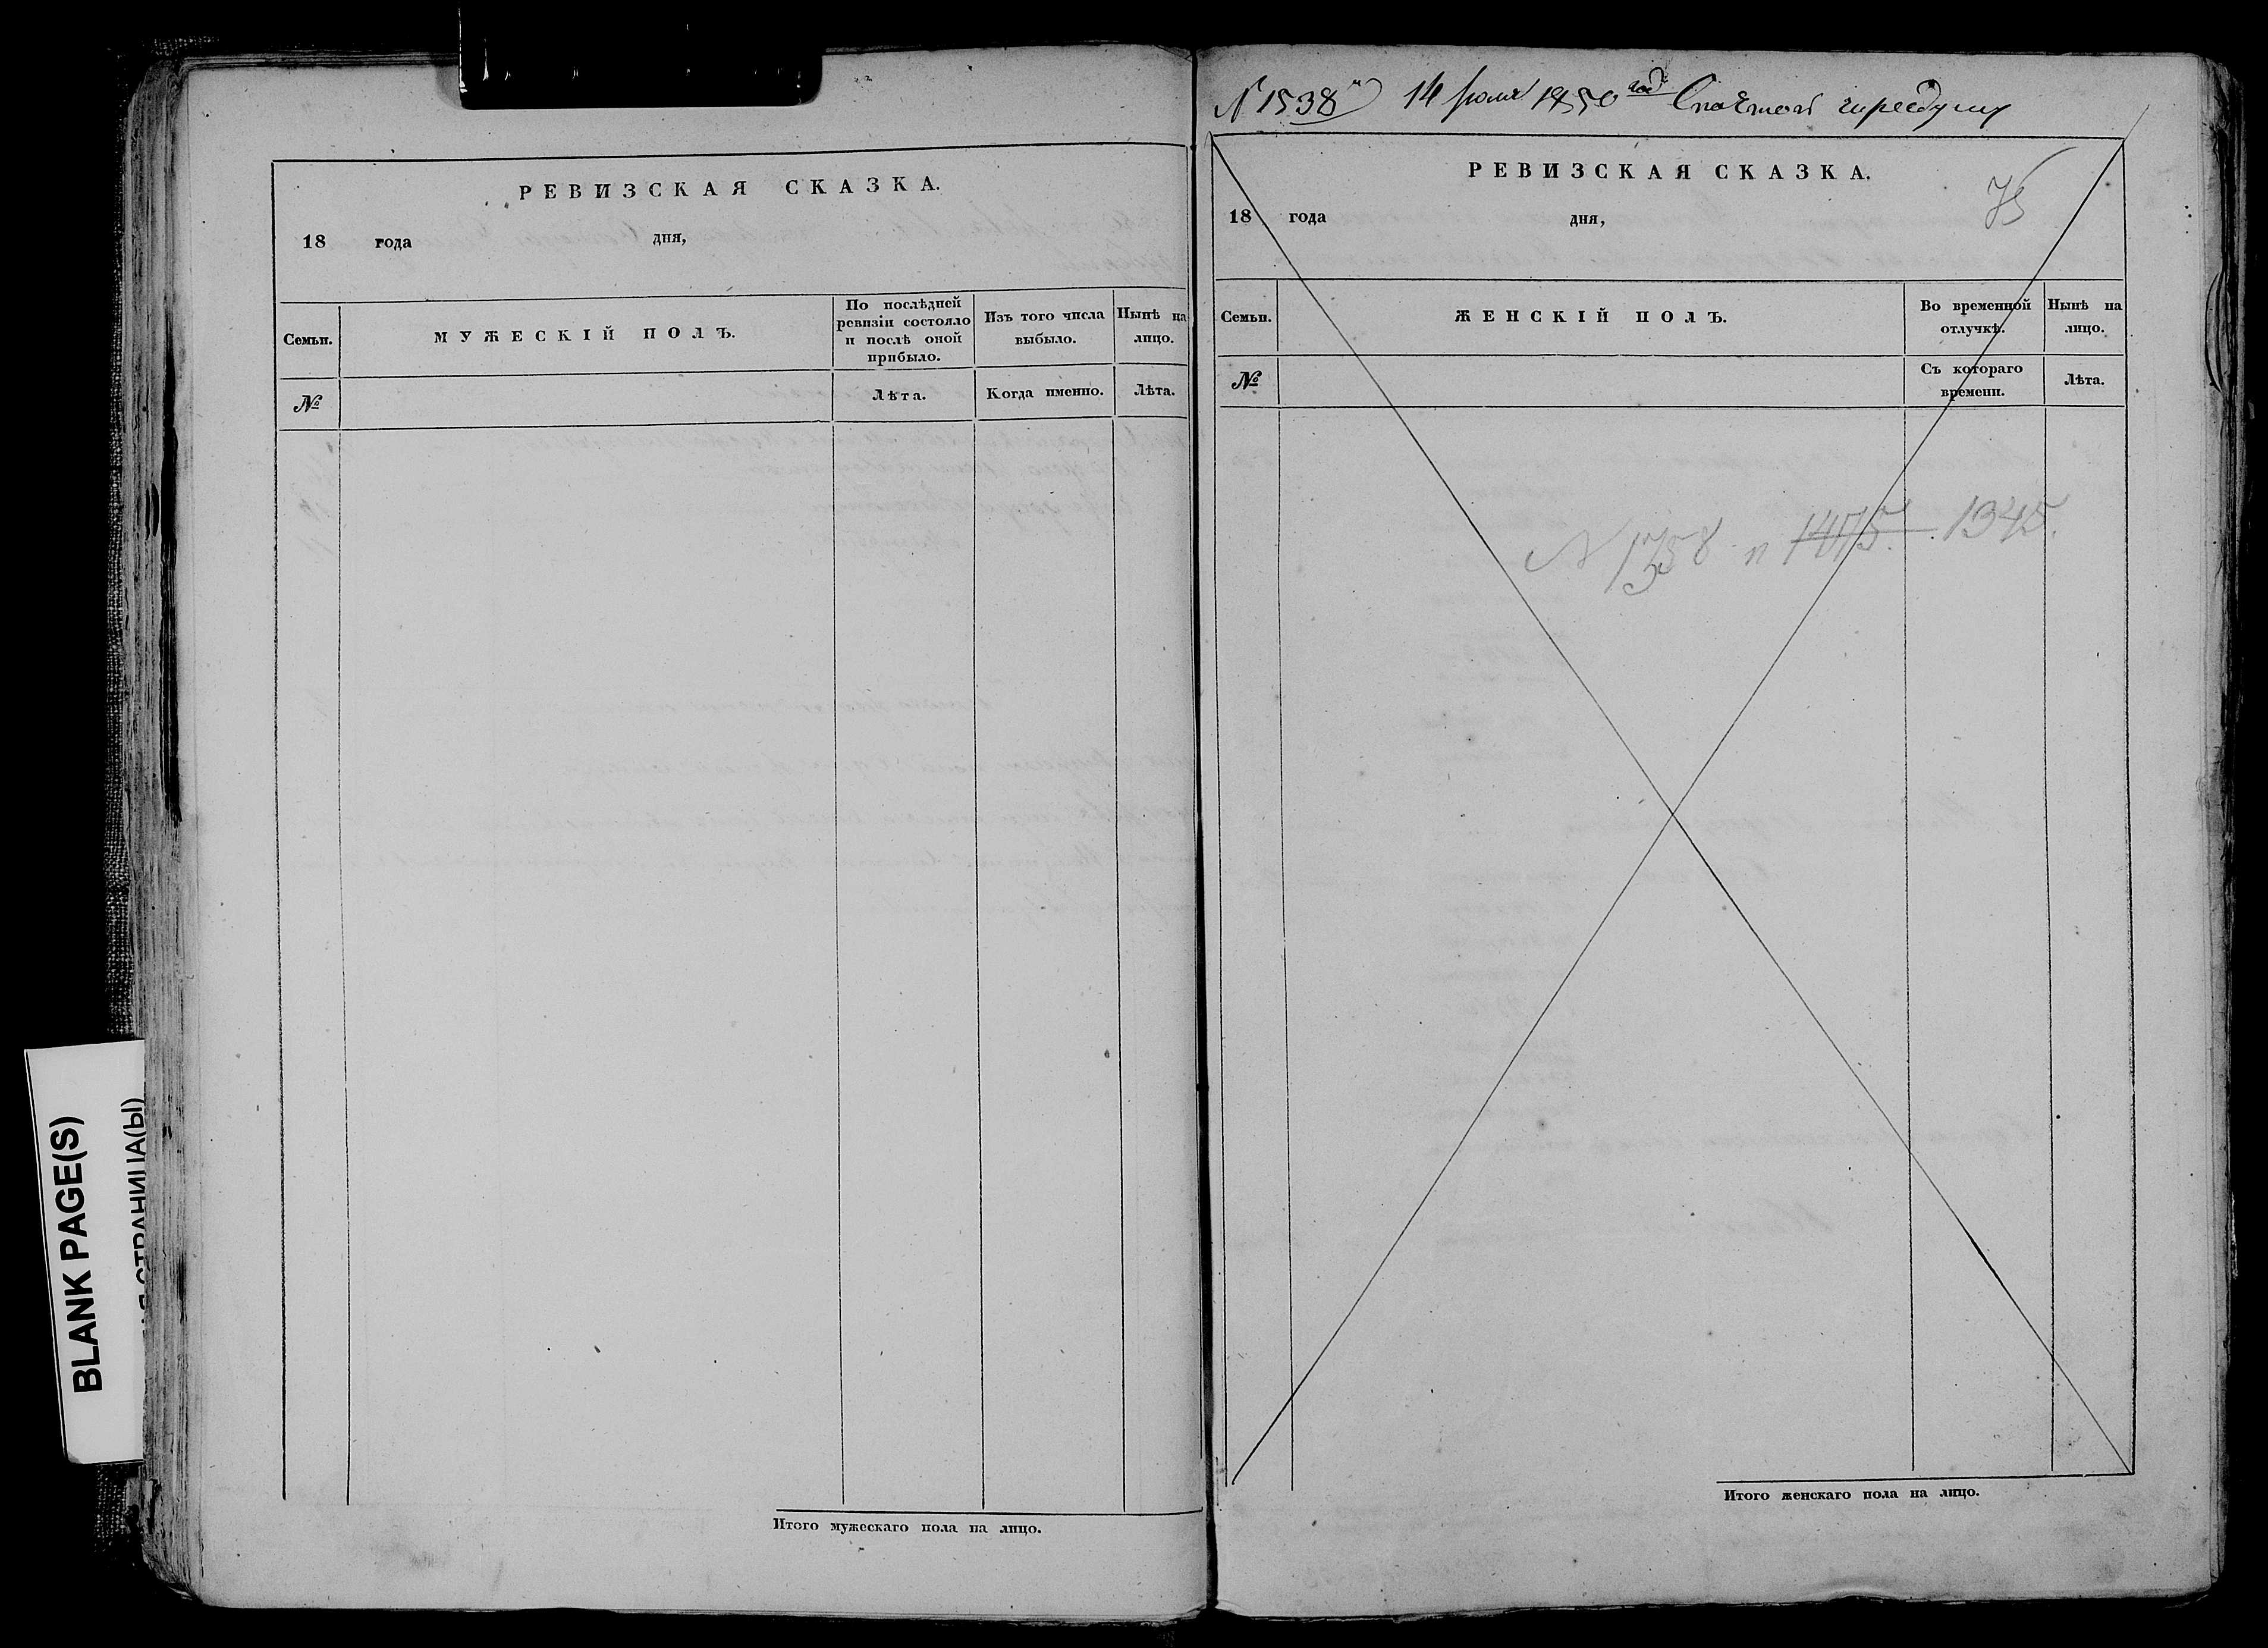 РЕВИЗСКАЯ СКАЗКА.
18 года дня,
Семьи.
МУЖЕСКІЙ ПОЛЪ.
По послѣдней
ревизіи состояло
и послѣ оной
прибыло.
Изъ того числа
выбыло.
Нынѣ на
лицо.
№
Лѣта.
Когда именно.
Лѣта.
Итого мужескаго пола на лицо.
BLANK PAGE(S)
СТРАНИЦА(Ы)
N 1538 14 1850 года
РЕВИЗСКАЯ СКАЗКА.
75
18 года дня,
Семьи.
ЖЕНСКІЙ ПОЛЪ.
Во временной
отлучкѣ.
Нынѣ на
лицо.
№
Съ котораго
времени.
Лѣта.
N 1358 п 1475. 1345.
Итого женскаго пола на лицо.